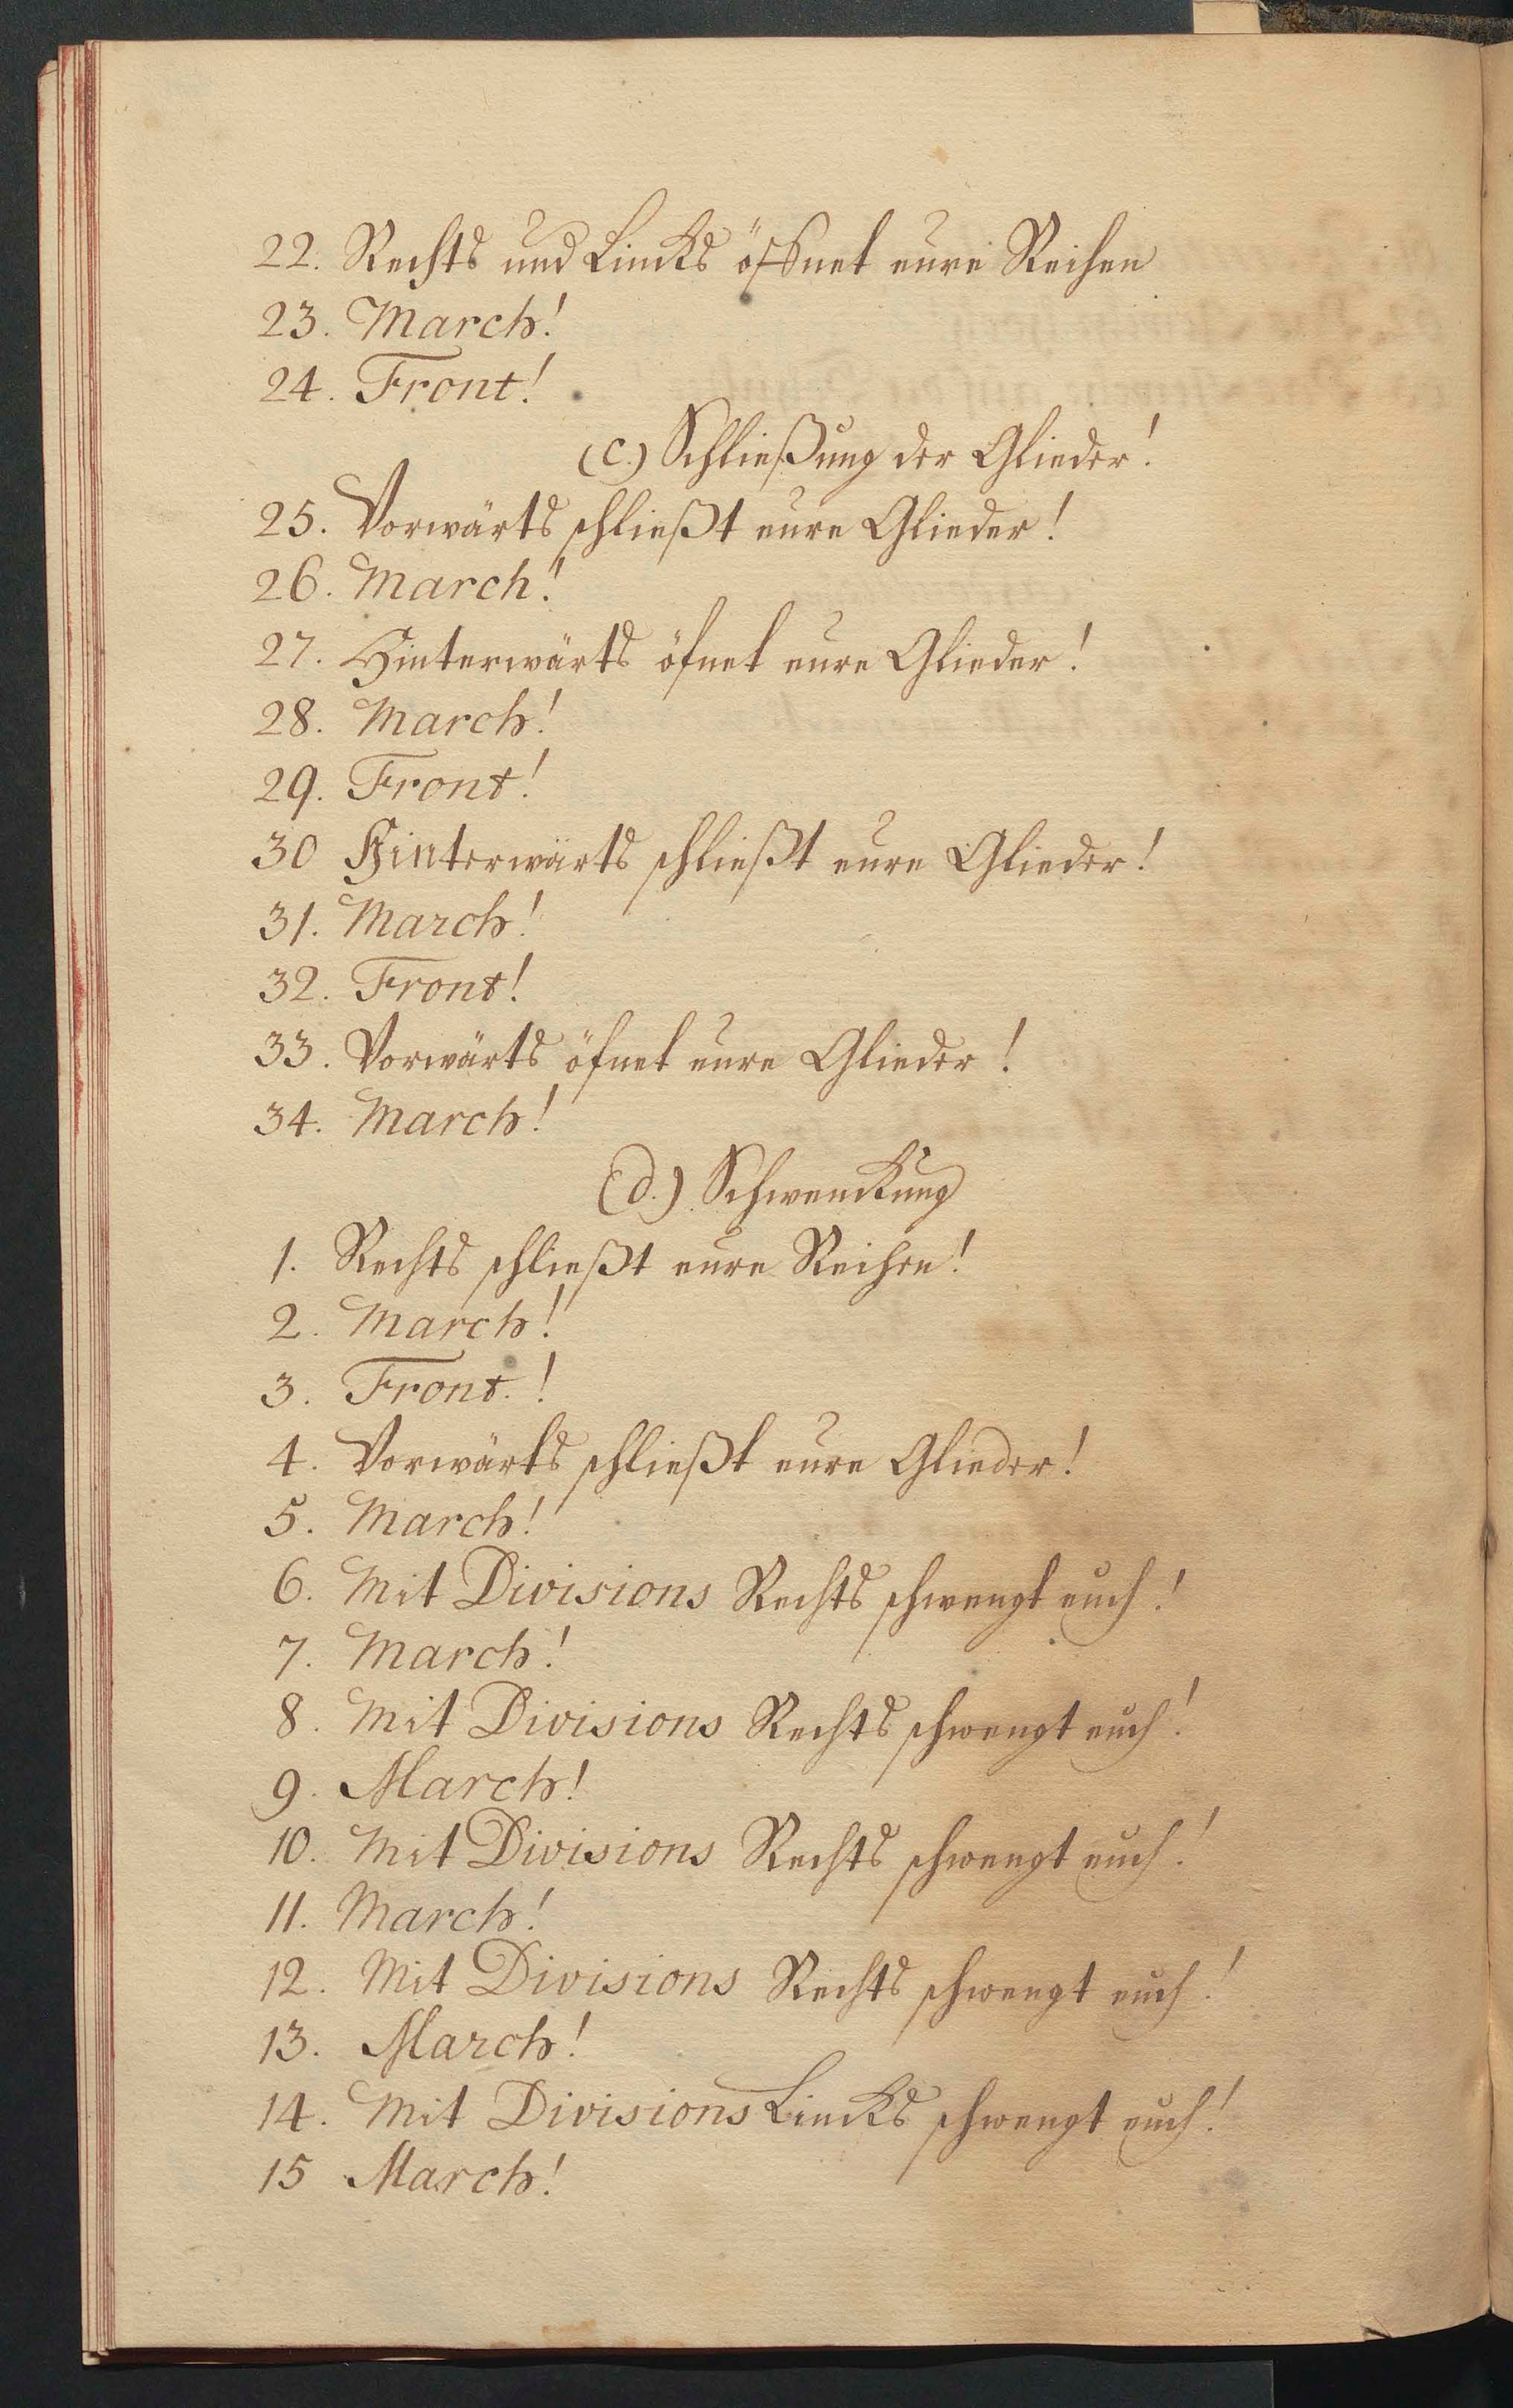 22. Rechts und Lincks öffnet eure Reihen
23. March!
24. Front!
(c.) Schließung der Glieder!
25. Vorwärts schließt eure Glieder!
26. March!
27. Hinterwärts öfnet eure Glieder!
28. March!
29. Front!
30 Hinterwärts schließt eure Glieder!
31. March!
32. Front!
33. Vorwärts öfnet eure Glieder!
34. March!
(d.) Schwenckung
1. Rechts schließt eure Reihen!
2. March!
3. Front.!
4. Vorwärts schließt eure Glieder!
5. March!
6. Mit Divisions Rechts schwengt euch!
7. March!
8. Mit Divisions Rechts schwengt euch!
9. March!
10. Mit Divisions Rechts schwengt euch!
11. March!
12. Mit Divisions Rechts schwengt euch!
13. March!
14. Mit Divisions Lincks schwengt euch!
15 March!